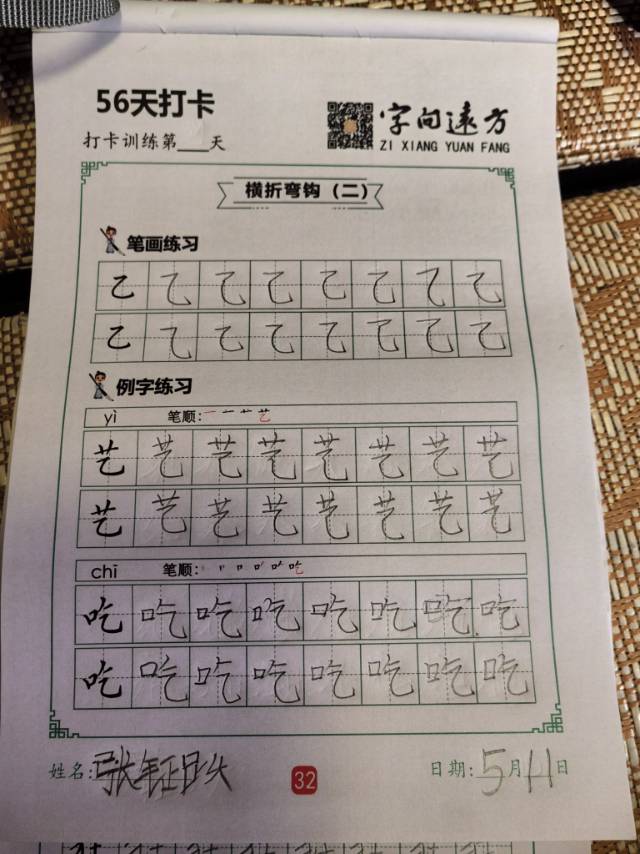 56天打卡
打卡训练第___天
字向遠方
ZI XIANG YUAN FANG
横折弯钩（二）
笔画练习
乙 乙 乙 乙 乙 乙 乙 乙
乙 乙 乙 乙 乙 乙 乙 乙
例字练习
yì 笔顺: 一 艹 艺
艺 艺 艺 艺 艺 艺 艺 艺
艺 艺 艺 艺 艺 艺 艺 艺
chī 笔顺: 吃
吃 吃 吃 吃 吃 吃 吃 吃
吃 吃 吃 吃 吃 吃 吃 吃
姓名: 张
32
日期: 5月11日